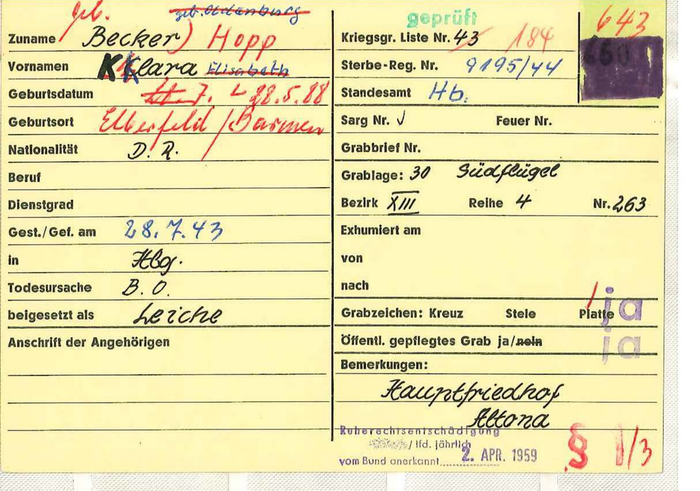 geb. geb. Oldenburg
geprüft
643
Zuname Becker) Hopp
Kriegsgr. Liste Nr. 43 184
Vornamen Klara Elisabeth
Sterbe-Reg. Nr. 9195/44
Geburtsdatum 28.5.88
Standesamt Hb.
Geburtsort Elberfeld / Barmen
Sarg Nr. Feuer Nr.
Nationalität D.R.
Grabbrief Nr.
Beruf
Grablage: 30 Südflügel
Dienstgrad
Bezirk XIII Reihe 4 Nr. 263
Gest./Gef. am 28.7.43
Exhumiert am
in Hbg.
von
Todesursache B.O.
nach
beigesetzt als Leiche
Grabzeichen: Kreuz Stele Platte ja
Anschrift der Angehörigen
Öffentl. gepflegtes Grab ja/nein ja
Bemerkungen:
Hauptfriedhof
Altona
Ruherechtsentschädigung
/ lfd. jährlich
vom Bund anerkannt 2. APR. 1959
§ 1/3